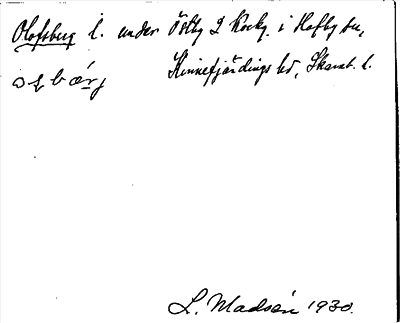 Olofsberg l. under Östby 2 Kockg. i Hofby sn,
Kinnefjärdings hd, Skarab. l.
L. Madsén 1930.